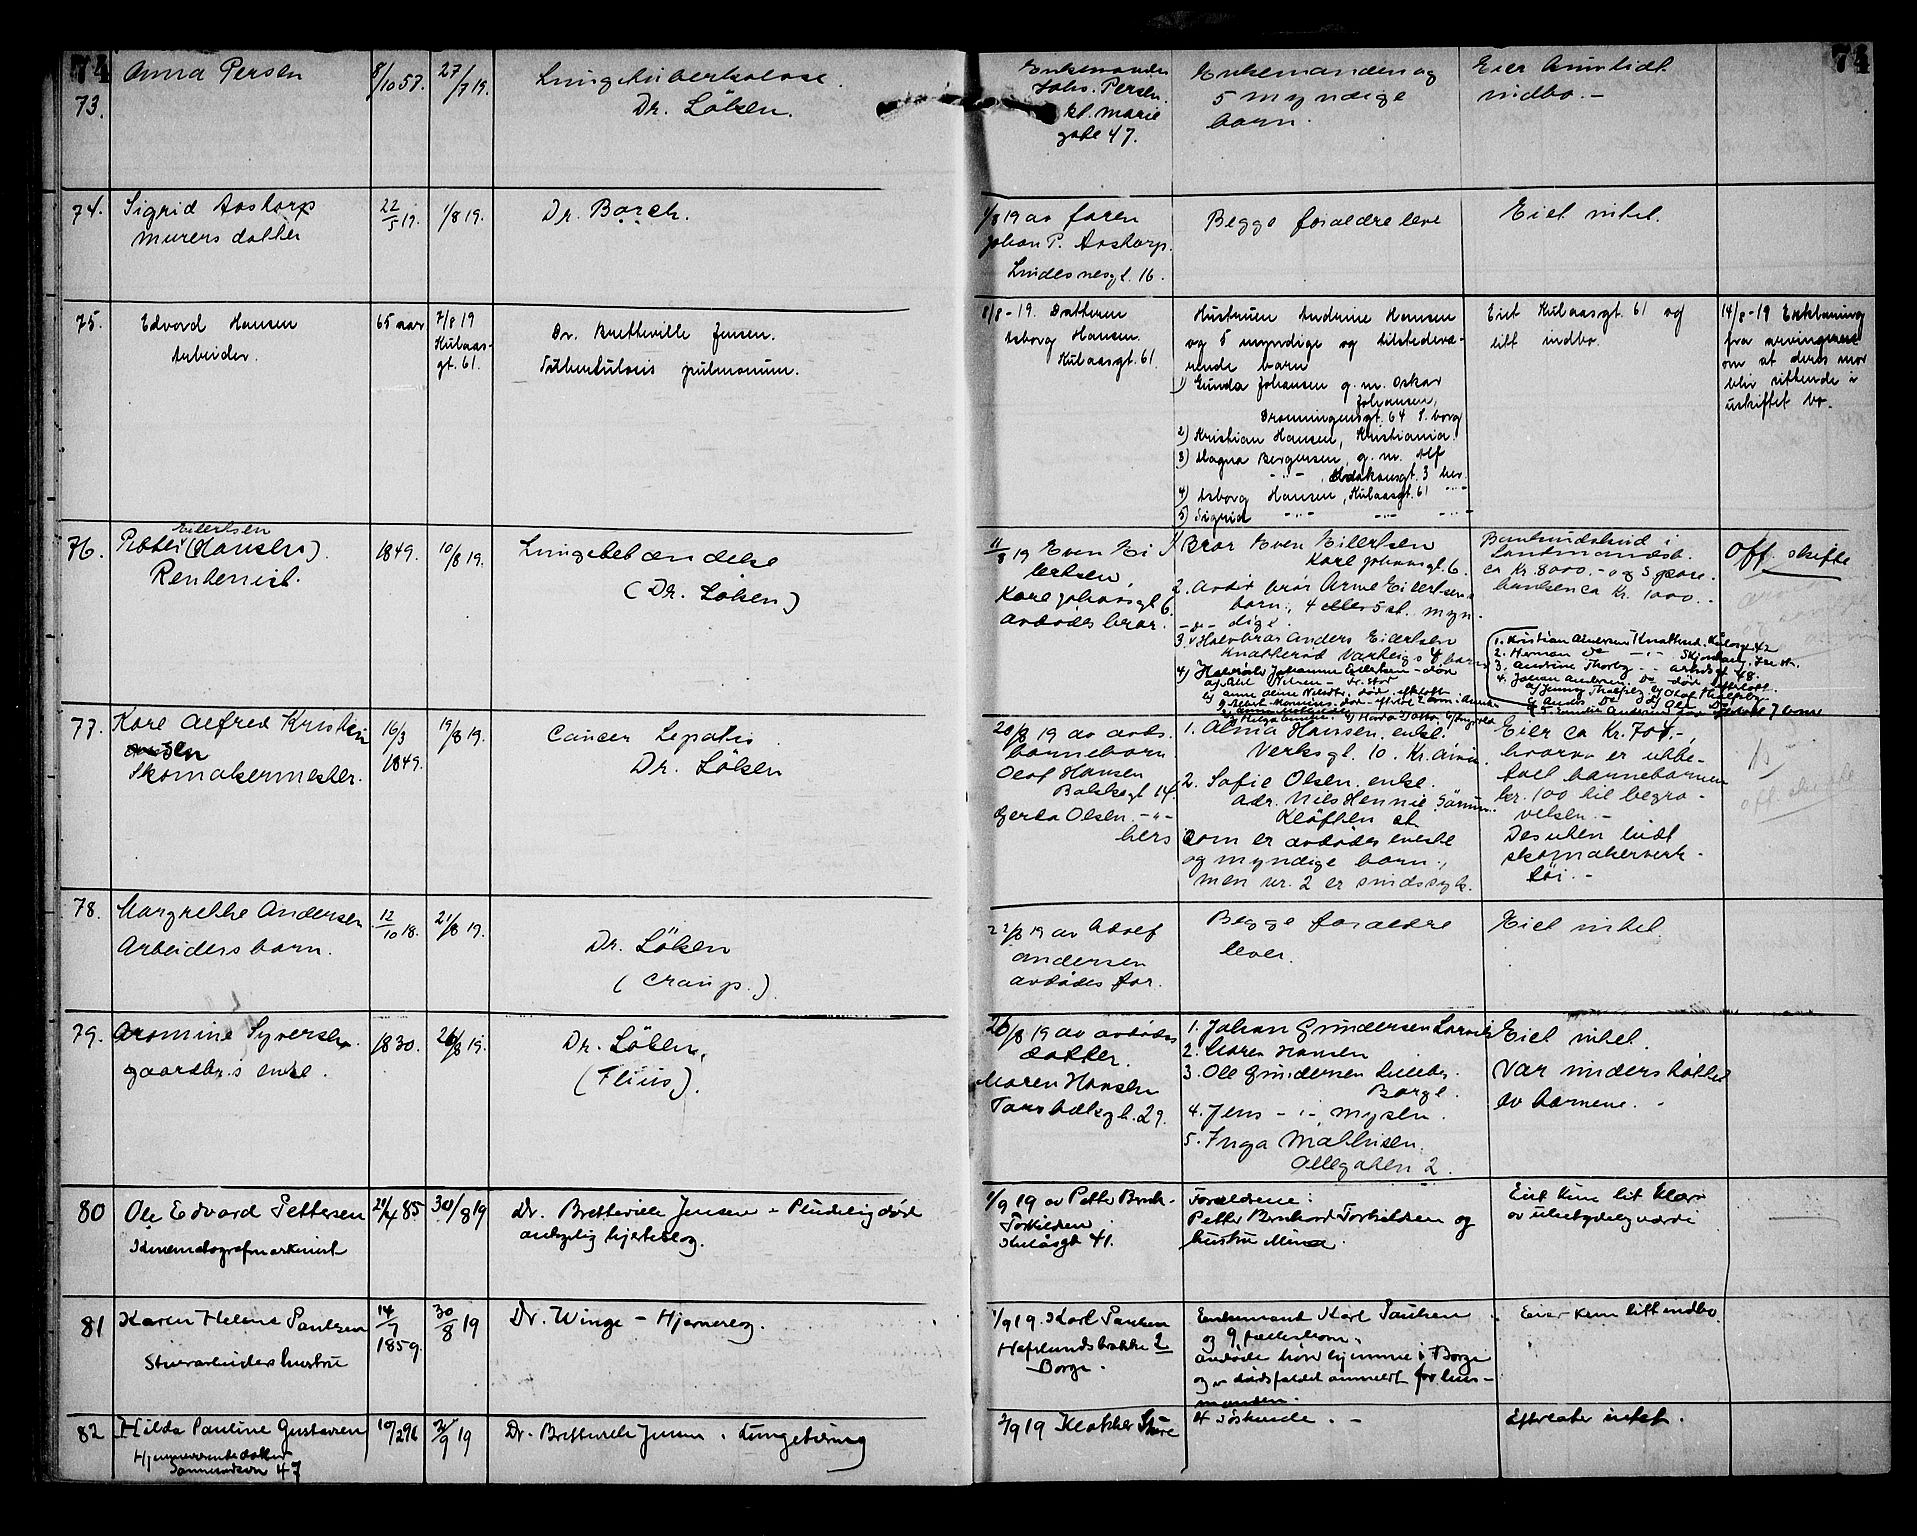 74
74
73.
Anna Persen
8/10 57.
27/7 19.
Lungetuberkulose.
Dr. Lölsen.
Enkemanden
Johs. Persen.
kl. Marie
gate 47.
Enkemanden og
5 myndige
barn.
Eier kun lidt
indbo. -
74.
Sigrid Aastorp
murers datter
22/5 19.
1/8 19.
Dr. Borch.
1/8 19 av faren
Johan P. Aastorp.
Lindesnesgt. 16.
Begge foraeldre leve
Eiet intet.
75.
Edvard Hansen
Arbeider.
65 aar
7/8 19
Kulaas-
gt. 61.
Dr. Bretteville Jensen.
Tuberkulosis pulmonum.
8/8-19. Datteren
Asborg Hansen
Kulaasgt. 61
Hustruen Andrine Hansen
og 5 myndige og tilstedevæ-
rende barn
1) Gunda Johansen g. m. Oskar
Johansen,
Dronningensgt. 64 S. borg
2) Kristian Hansen, Kristiania.
3) Magna Bergersen g. m. Alf
-"- Haakonsgt. 3 her
4) Asborg Hansen, Kulaasgt. 61 -"-
5) Sigrid -"- -"- -"-
Eiet Kulaasgt. 61 og
litt indbo.
14/8-19 Erklæring
fra arvingerne
om at deres mor
blir sittende i
uskiftet bo.
76.
Eilertsen
Petter (Hansen).
Rentenist.
1849.
10/8 19.
Lungebetændelse
(Dr. Lölsen)
11/8 19 Even Ei
lertsen,
Karl Johansgt 6.
avdødes bror.
1 Bror Even Eilertsen
Karl Johansgt. 6.
2. Avdø bror Arne Eilertsens
barn, 4 eller 5 st. myn
-"- dige.
3. Halvbror Anders Eilertsen
Knatterød Varteig 4 barn
Bankindskud i
Landmandsb.
ca Kr. 8000. - og
ca Kr. 1000. -
Off. skifte
1. Kristian Andersen Knatterud
2. Herman Do
3. Andrine Thorby
4. Johan Andersen Do død
77.
Karl Alfred Kristian
sen
Skomakermester.
16/3
1849.
19/8 19.
Cancer hepatis
Dr. Lölsen
20/8 19 av avd.
barnebarn
Olaf Hansen
gt 14.
Gerda Olsen -"-
hers
1. Alma Hansen, enke.
Verksgt. 10. Kr.ania.
2. Sofie Olsen, enke.
Adr. Nils Hennie, Sörum.
Kløften st
som er avdødes eneste
og myndige barn,
men nr. 2 er sindssyk.
Eier ca Kr. 704.-,
hvorav er utbe-
talt barnebarnene
kr. 100 til begra-
velsen. -
Desuten lidt
skomakerverk-
tøi. -
off. skifte
78.
Margrethe Andersen
Arbeidersbarn.
12/10 18.
21/8 19.
Dr. Lölsen
(Croup.)
22/8 19 av Adolf
Andersen
avdødes far.
Begge foraeldre
lever.
Eiet intet
79.
Aromine Syversen.
gaardbr.s enke.
1830.
26/8 19.
Dr. Lölsen,
(Flüss).
26/8 19 av avdødes
datter.
Maren Hansen
Tarsbækgt. 29.
1. Johan Gundersen Larvik
2. Maren Hansen
3. Ole Gundersen Lilleby.
Borge.
4. Jens -"- Mysen.
5. Inga Mathisen.
Allegaten 2.
Eiet intet.
Var understøttet
av barnene. -
80
Ole Edvard Pettersen
Kinematografmaskinist
21/4 85
30/8 19
Dr. Bretteville Jensen - Pludselig død
antagelig hjerteslag.
1/9 19 av Petter Bernh.
Torkildsen
Kulåsgt 41.
Forældrene:
Petter Bernhard Torkildsen og
hustru Mina.
Eiet kun lit klær
av ubetydelig værdi
81
Karen Helene Paulsen
Stuerarbeiders hustru
14/7
1859.
30/8 19
Dr. Winge - Hjerneslag.
1/9 19. Karl Paulsen
Hafslundsbakke 2
Borge.
Enkemand Karl Paulsen
og 9 fællesbarn.
Avdøde hører hjemme i Borge
og er dødsfaldet anmeldt for lens-
manden.
Eier kun litt indbo.
82
Hilda Pauline Gustavsen
Hjemmeværende datter
47
10/2 96
2/9 19
Dr. Bretteville Jensen. Lungetæring
2/9 19 Klokker Sture
4 søskende. -
Efterlater intet.